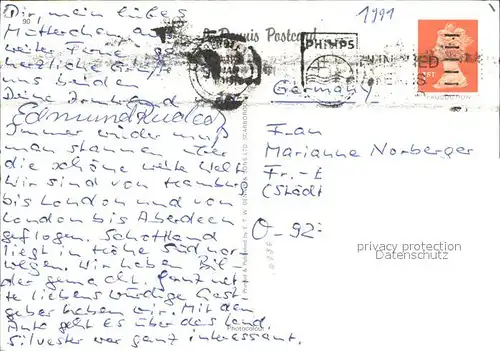 Dir, mein liebes
Mütterchen aus
weiter Ferne ganz
herzliche Grüße
uns beiden
Deine
Edmund
Immer wieder muß
man staunen über
die schöne weite Welt.
Wir sind von Hamburg
bis London und von
London bis Aberdeen
geflogen. Schottland
liegt in Höhe Süd nor
wegen. Wir haben Bil
der gemacht. Ganz net
te liebenswürdige Gast-
geber haben wir. Mit dem
Auto geht es über das Land.
Silvester war ganz interessant.
90
Dennis Postcard
1991
PHILIPS
1ST
Germany
Frau
Marianne Norberger
Fr.-E
(Städt
O-92
privacy protection
AK-Ansichtskarten.de
Photocolour